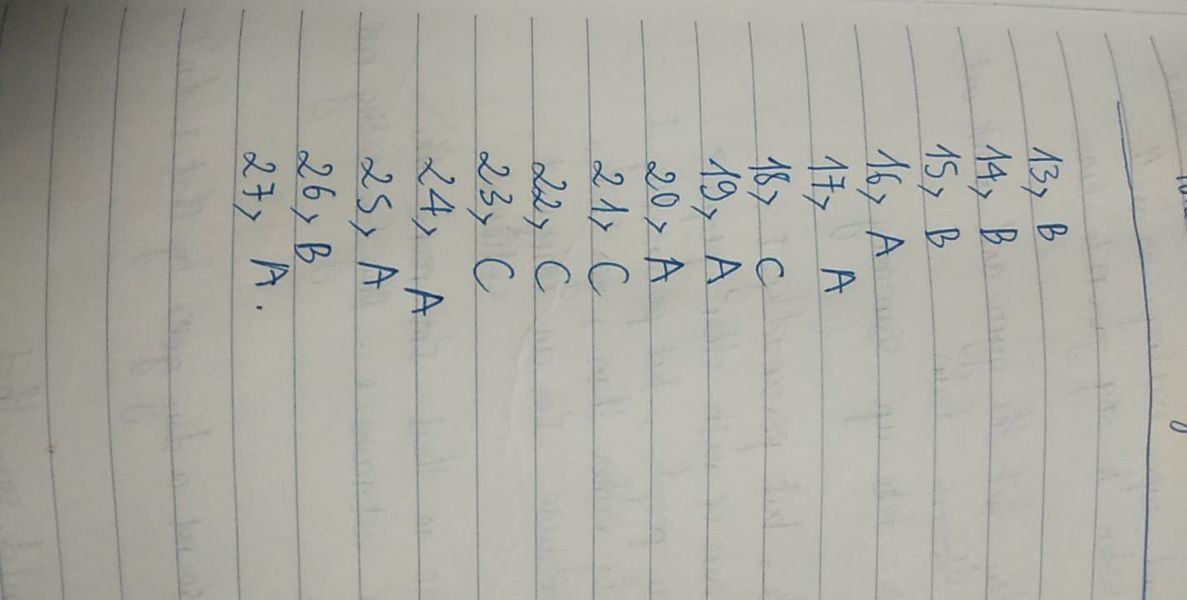 13, B
14, B
15, B
16, A
17, A
18, C
19, A
20, A
21, C
22, C
23, C
24, A
25, A
26, B
27, A.